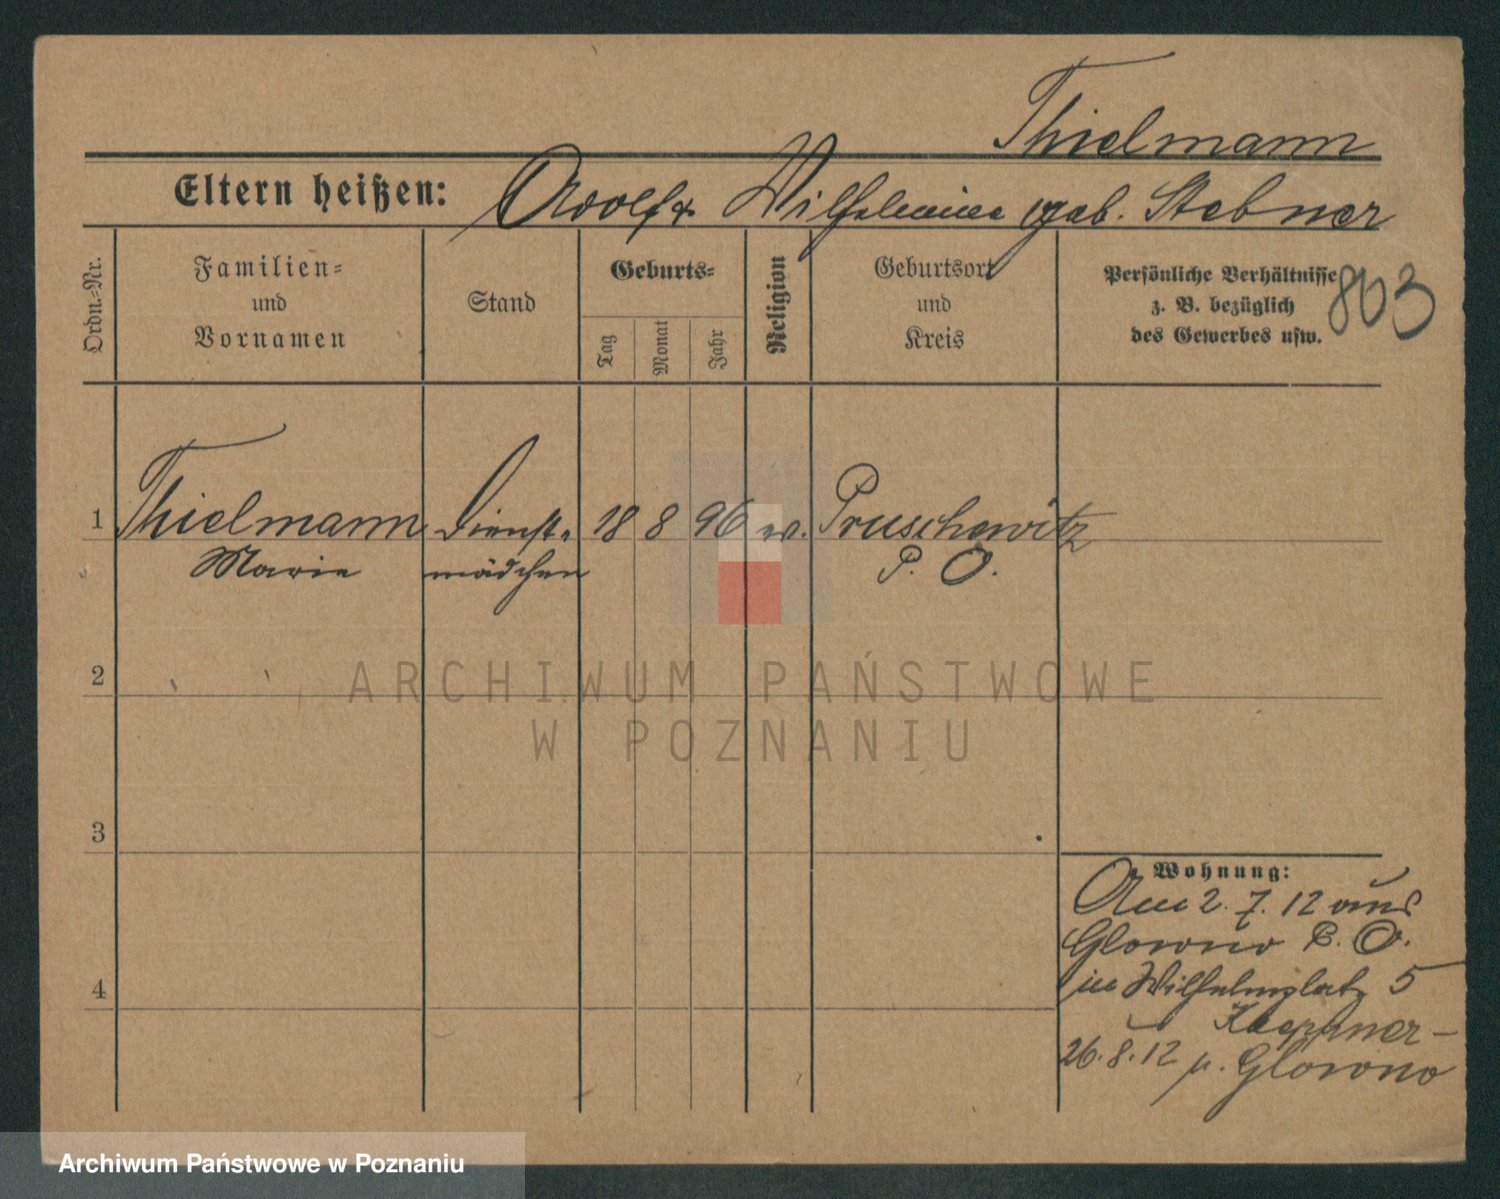 Thielmann
Eltern heißen: Adolf & Wilhelmine geb. Stebner
Ordn.-Nr.
Familien-
und
Vornamen
Stand
Geburts-
Tag
Monat
Jahr
Religion
Geburtsort
und
Kreis
Persönliche Verhältnisse
z. B. bezüglich
des Gewerbes usw.
803
1 Thielmann Dienst- 18 8 96 ev. Pruschewitz
Marie mädchen P. O.
2
3
4
Wohnung:
Am 2. 7. 12 aus
Glowno P. O.
in Wilhelmplatz 5
26. 8. 12 n. Glowno
ARCHIWUM PAŃSTWOWE
W POZNANIU
Archiwum Państwowe w Poznaniu